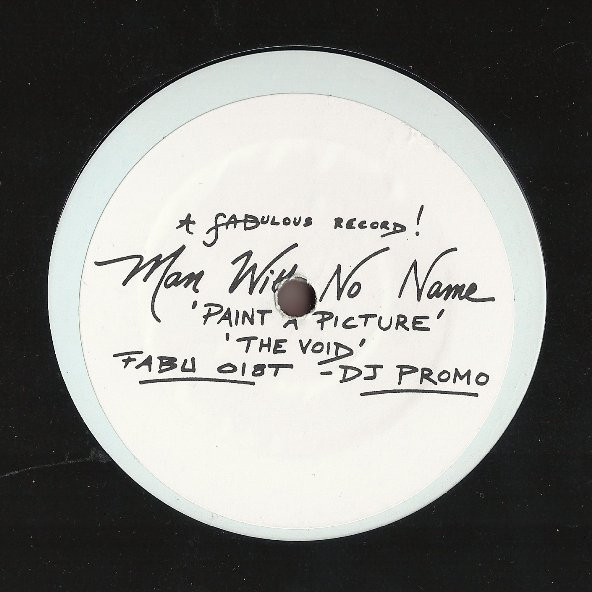 A fABulous RECORD!
Man With No Name
'PAINT A PICTURE'
'THE VOID'
FABU 018T - DJ PROMO